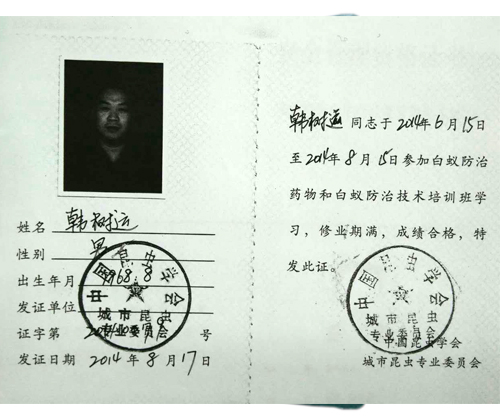 姓名 韩树运
性别 男
出生年月 1968.8
发证单位
证字第 号
发证日期 2014年8月17日
中国昆虫学会
城市昆虫
专业委员会
韩树运 同志于2014年6月15日
至2014年8月15日参加白蚁防治
药物和白蚁防治技术培训班学
习，修业期满，成绩合格，特
发此证。
中国昆虫学会
城市昆虫
专业委员会
中国昆虫学会
城市昆虫专业委员会